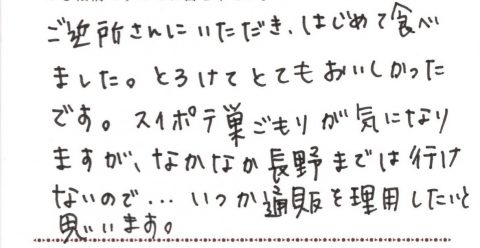 ご近所さんにいただき、はじめて食べ
ました。とろけてとてもおいしかった
です。スイポテ巣ごもりが気になり
ますが、なかなか長野までは行け
ないので…いつか通販を理用したいと
思います。